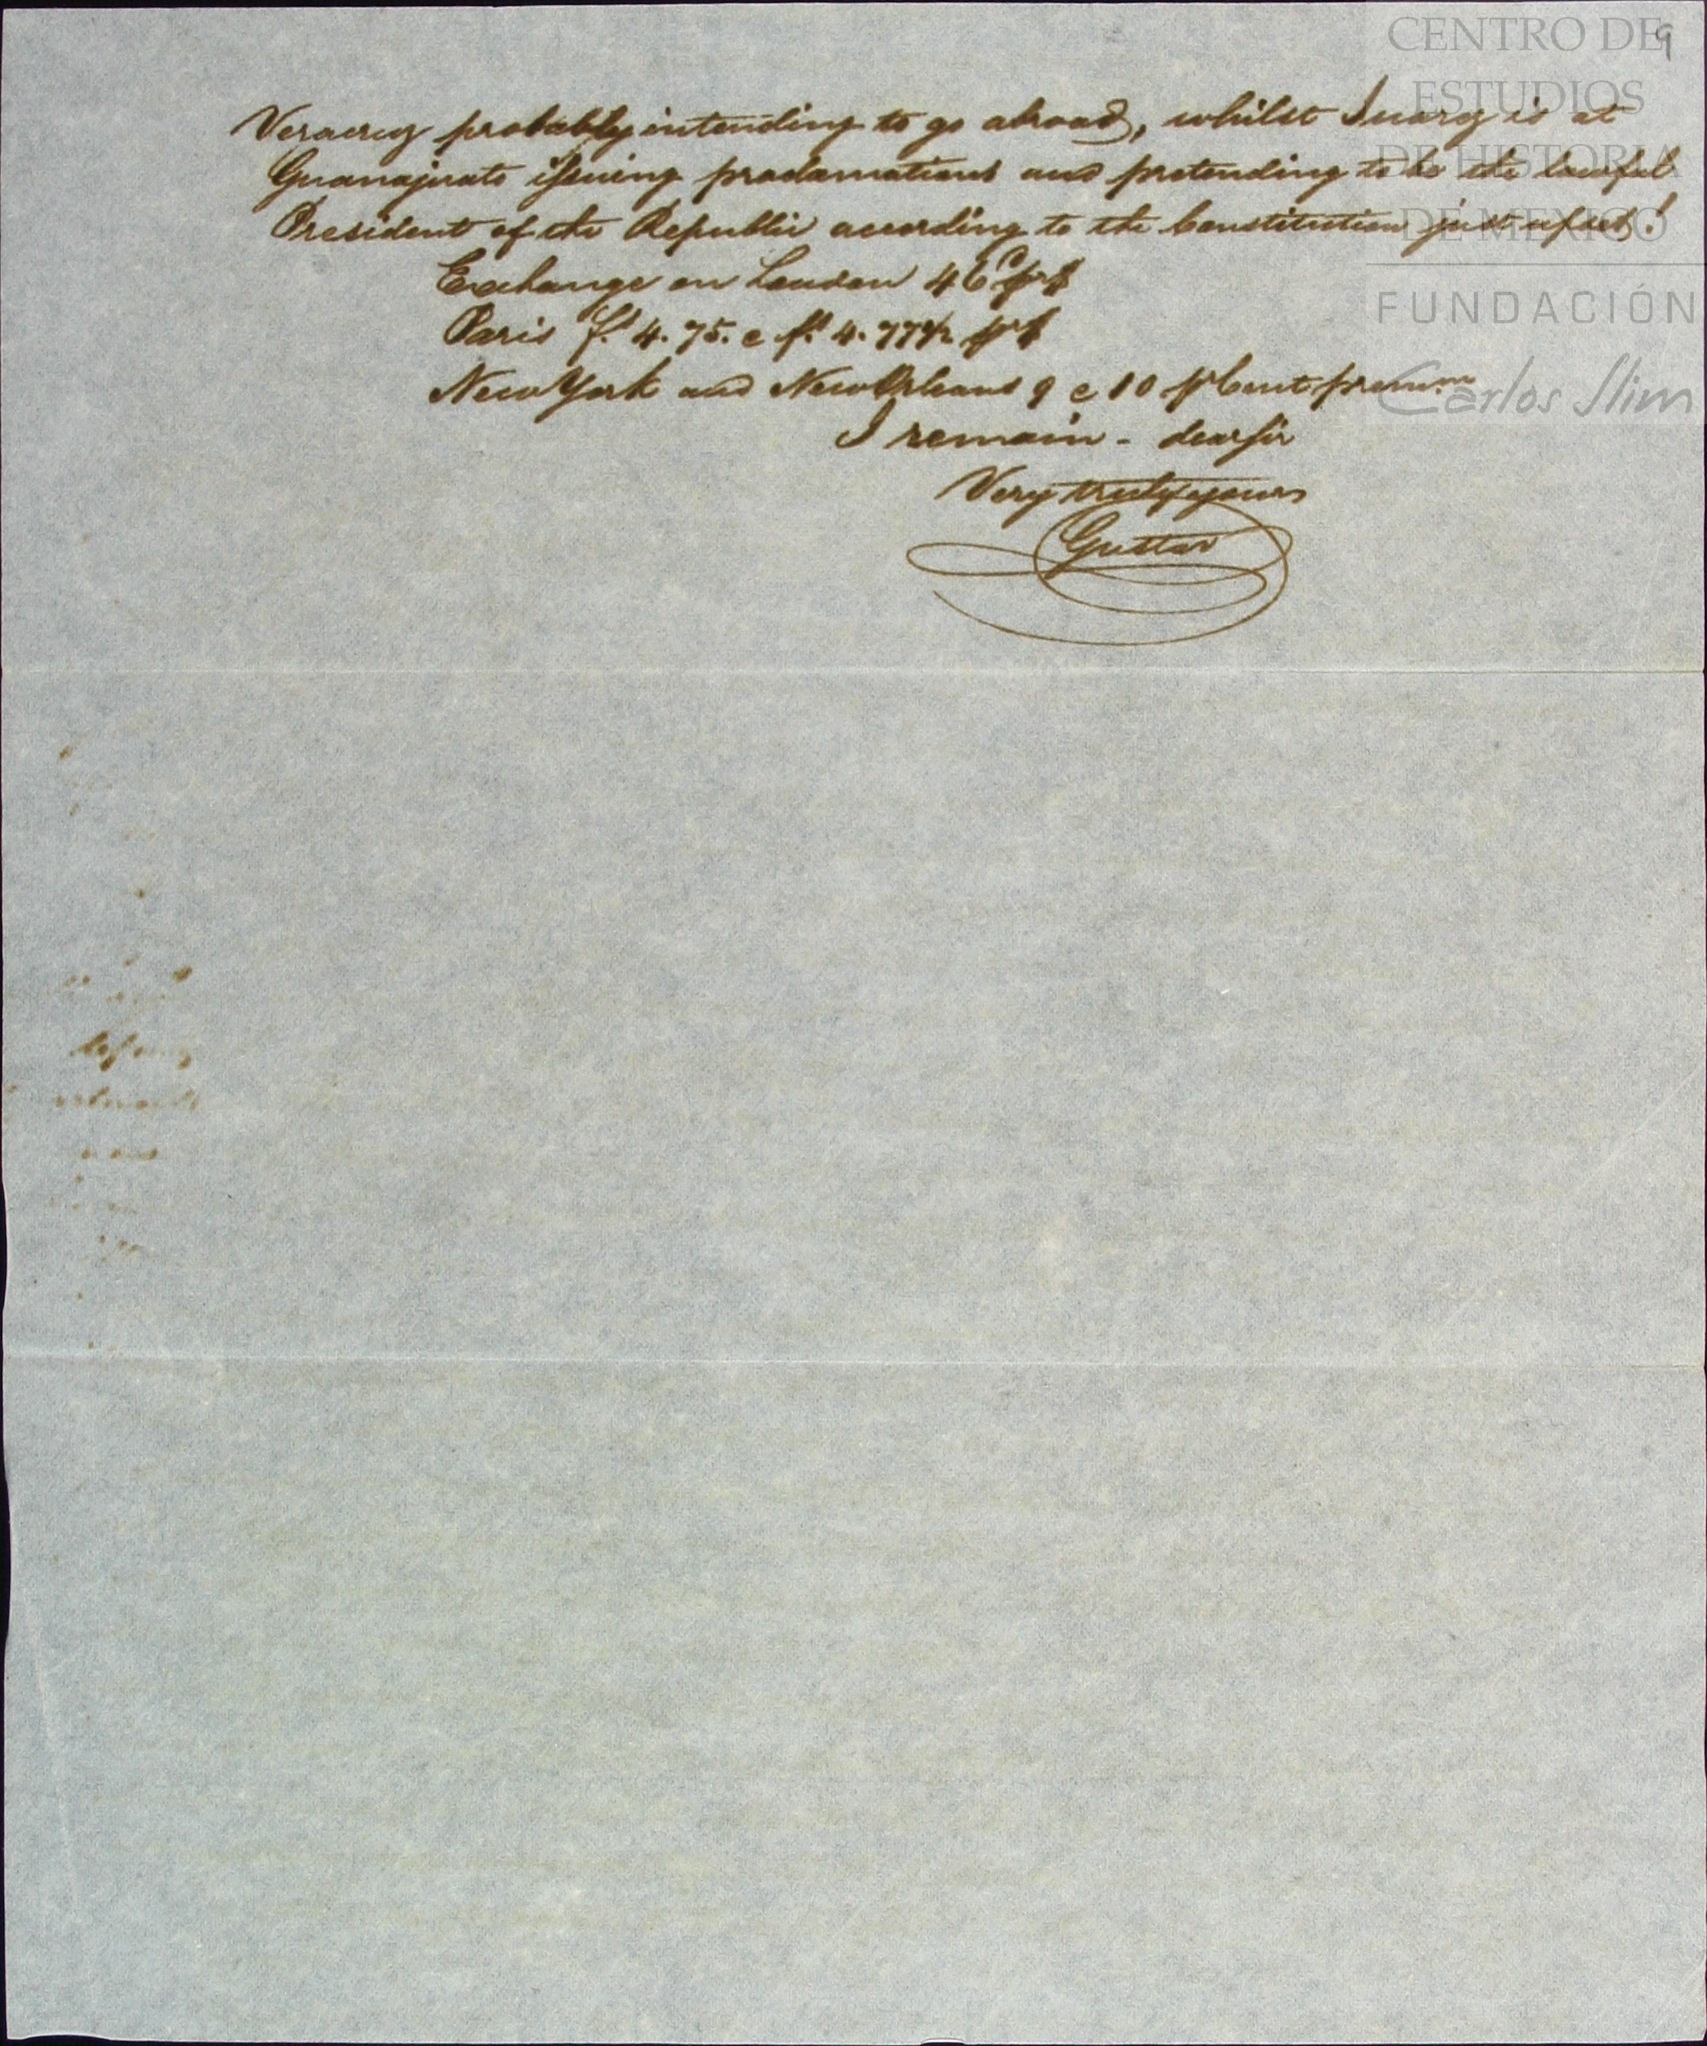 CENTRO DE
ESTUDIOS
DE HISTORIA
DE MEXICO
FUNDACIÓN
Carlos Slim
9
Veracruz probably intending to go abroad, whilst Juarez is at
Guanajuato issuing proclamations and pretending to be the lawful
President of the Republic according to the Constitution just upset!
Exchange on London 46d pr $
Paris fs 4.75. c fs 4.77½ pr $
New York and New Orleans 9 c 10 pr Cent premm
I remain - dear sir
Very truly yours
Gustav